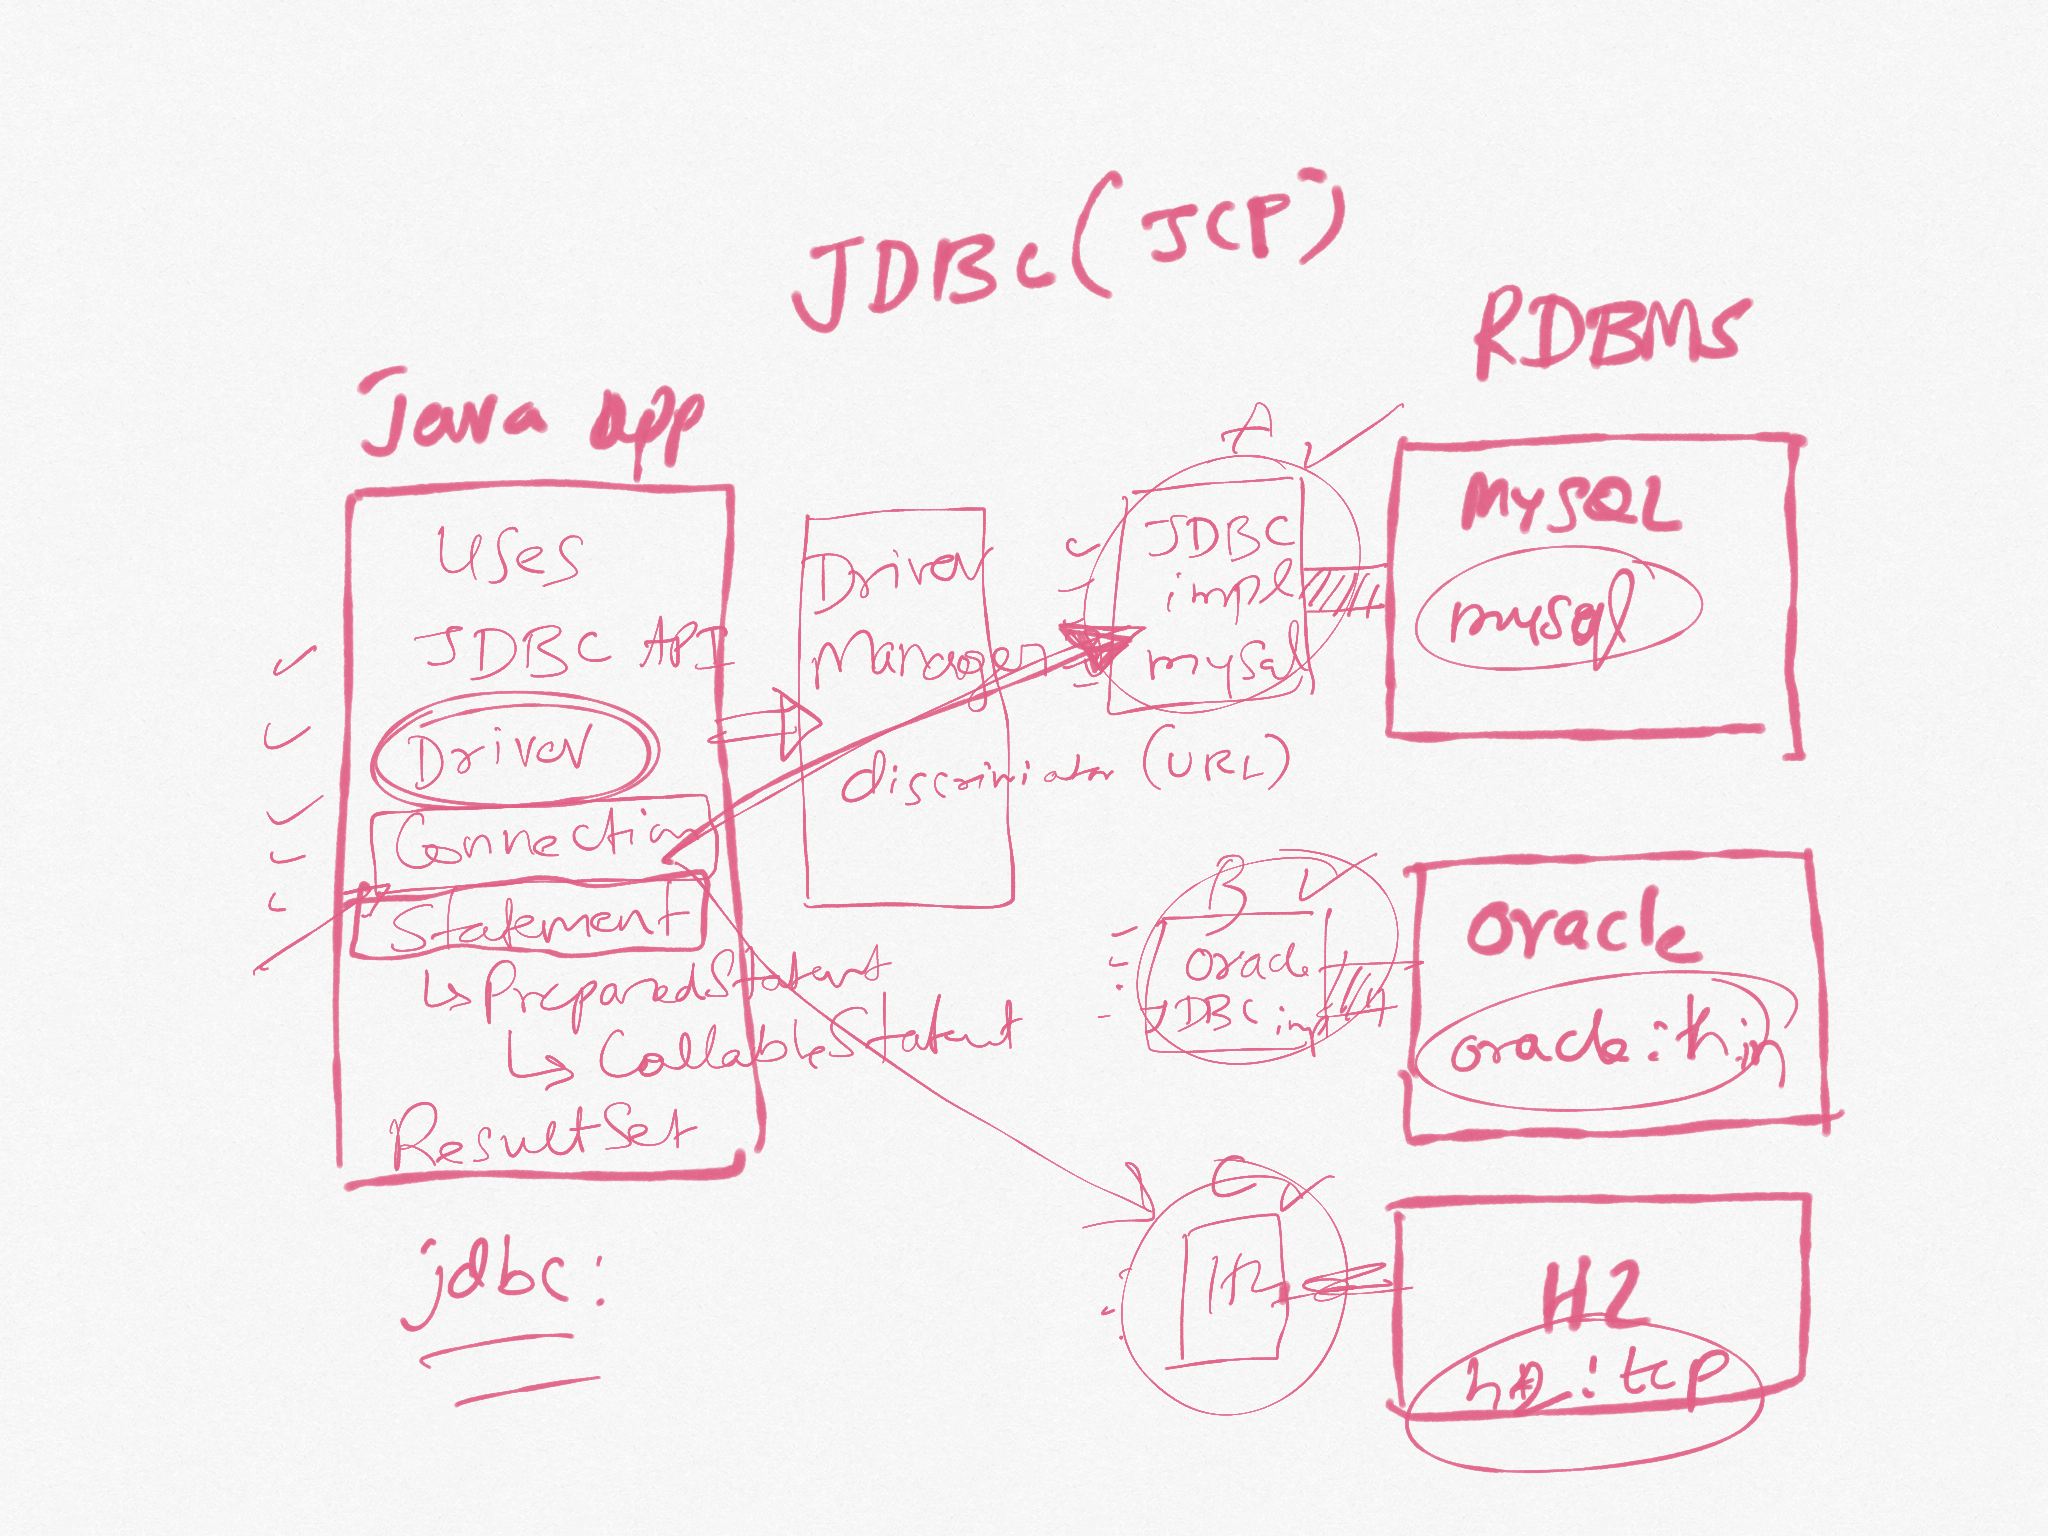 JDBC (JCP)
RDBMS
Java app
Uses
JDBC API
Driver
Connection
Statement
↳ PreparedStatent
↳ CallableStatent
ResultSet
jdbc:
Driver
Manager
discriminator (URL)
A
JDBC
impl
mysql
MySQL
mysql
B
oracle
JDBC impl
oracle
oracle:thin
C
H2
H2
h2:tcp